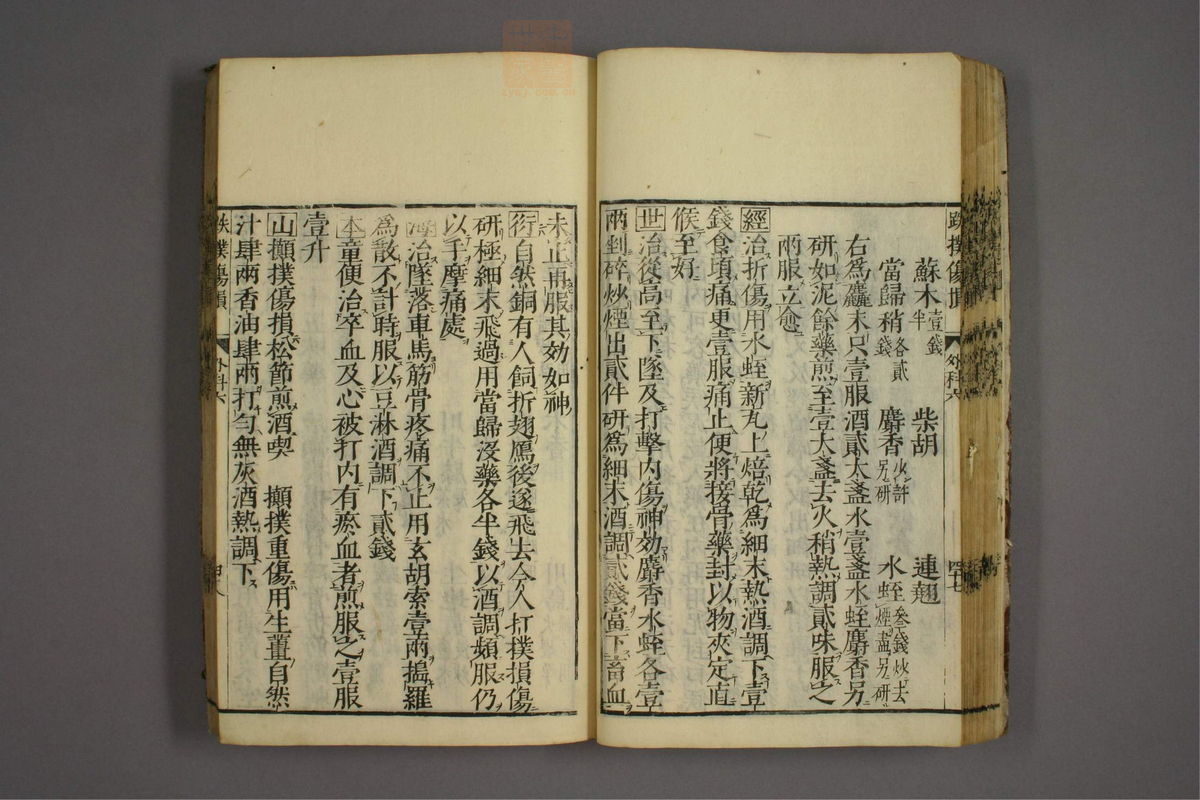 跌撲傷損 外科六 四七
蘇木壹錢半 柴胡 連翹
當歸稍各貳錢 麝香少許另研 水蛭叄錢炒去煙盡另研
右爲麤末只壹服酒貳大盞水壹盞水蛭麝香另
研如泥餘藥煎至壹大盞去火稍熱調貳味服之
兩服立愈
經治折傷用水蛭新瓦上焙乾爲細末熱酒調下壹
錢食頃痛更壹服痛止便將接骨藥封以物夾定直
候至好
世治從高至下墜及打擊内傷神効麝香水蛭各壹
兩剉碎炒煙出貳件研爲細末酒調貳錢當下畜血
未止再服其効如神
衍自然銅有人飼折翅鴈後遂飛去今人打撲損傷
研極細末飛過用當歸沒藥各半錢以酒調頻服仍
以手摩痛處
海治墜落車馬筋骨疼痛不止用玄胡索壹兩搗羅
爲散不計時服以豆淋酒調下貳錢
本童便治卒血及心被打内有瘀血者煎服之壹服
壹升
山攧撲傷損松節煎酒喫 攧撲重傷用生薑自然
汁肆兩香油肆兩打勻無灰酒熱調下
跌撲傷損 外科六 四八